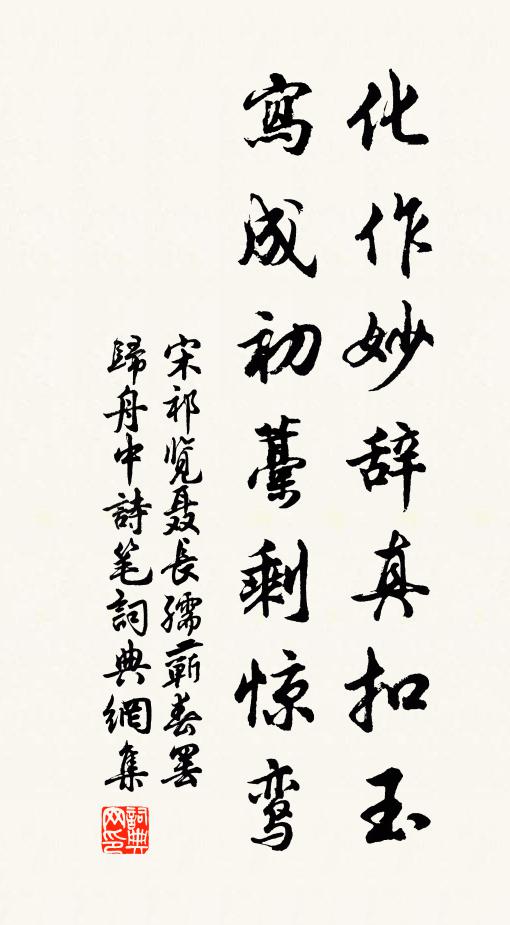 化作妙辞真扣玉
寫成初藁剩惊鸾
宋祁览聂长孺蕲春罢
歸舟中詩笔詞典網集
詞典網印